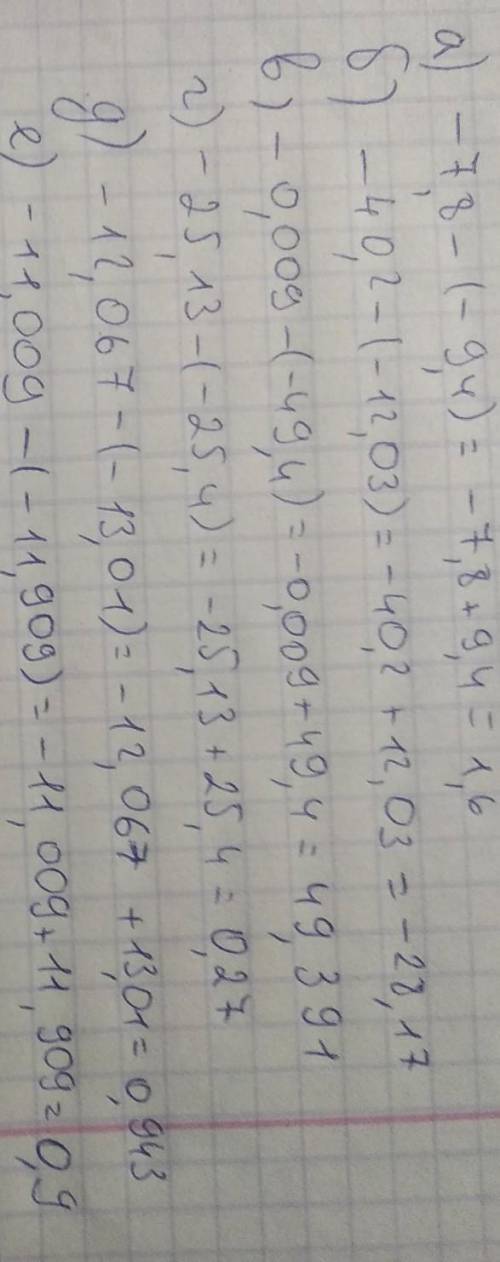 а) -7,8-(-9,4)=-7,8+9,4=1,6
б) -40,2-(-12,03)=-40,2+12,03=-28,17
в) -0,009-(-49,4)=-0,009+49,4=49,391
г) -25,13-(-25,4)=-25,13+25,4=0,27
д) -12,067-(-13,01)=-12,067+13,01=0,943
е) -11,009-(-11,909)=-11,009+11,909=0,9